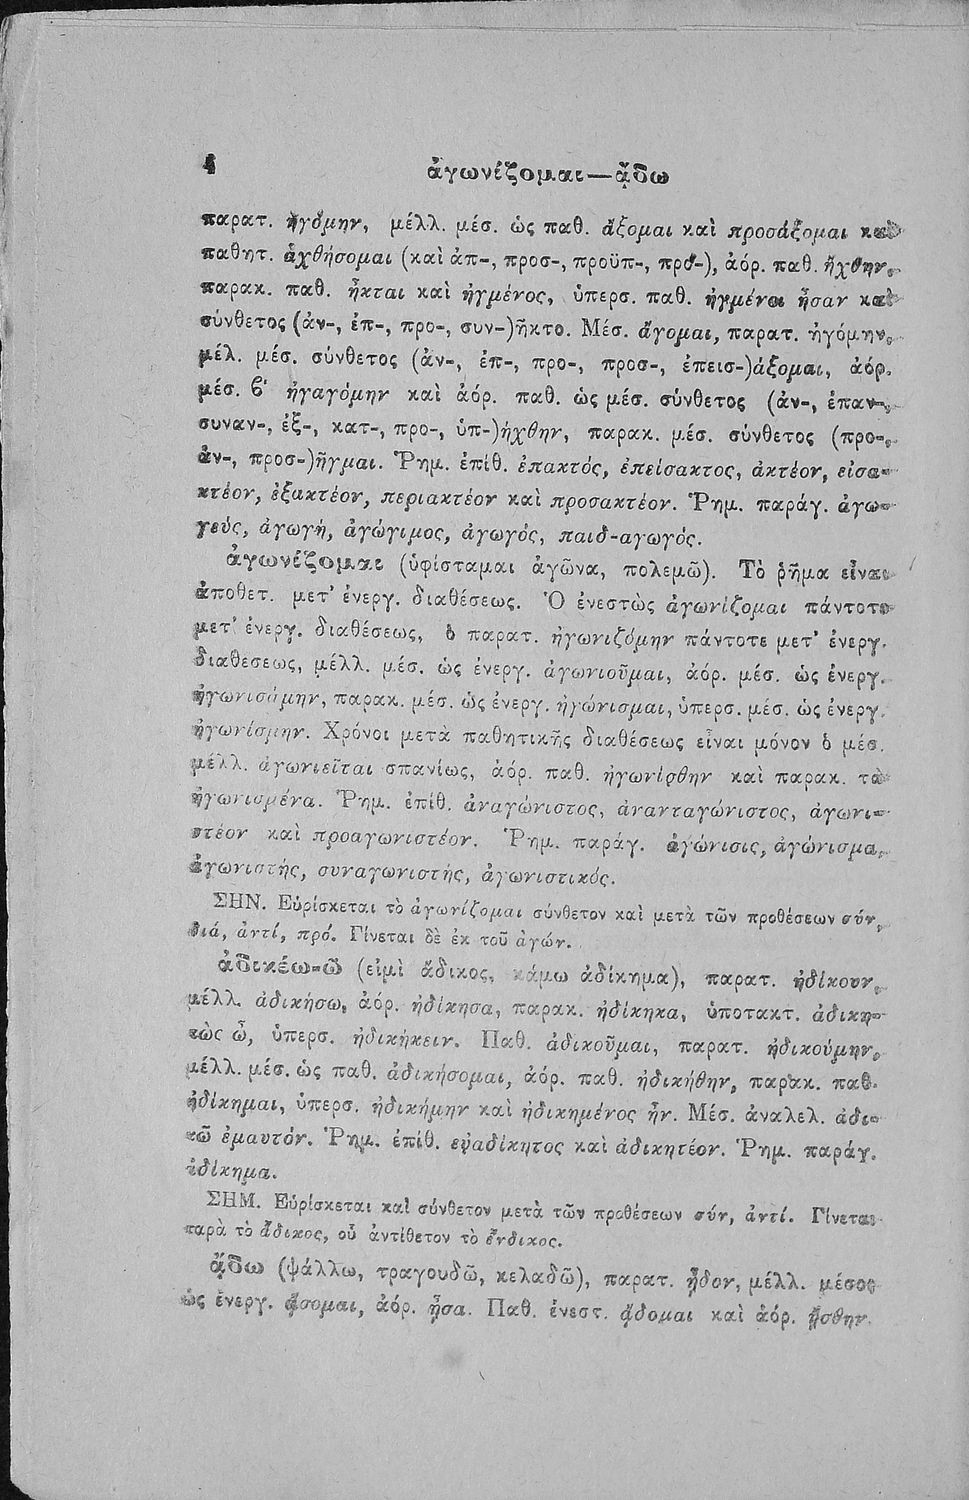 4
ἀγωνίζομαι—ᾄδω
παρατ. ἠγόμην, μέλλ. μέσ. ὡς παθ. ἄξομαι καὶ προσάξομαι καὶ
παθητ. ἀχθήσομαι (καὶ ἀπ-, προσ-, προϋπ-, προ-), ἀόρ. παθ. ἤχθην,
παρακ. παθ. ἦκται καὶ ἠγμένος, ὑπερσ. παθ. ἠγμένοι ἦσαν καὶ
σύνθετος (ἀν-, ἐπ-, προ-, συν-)ῆκτο. Μέσ. ἄγομαι, παρατ. ἠγόμην,
μέλ. μέσ. σύνθετος (ἀν-, ἐπ-, προ-, προσ-, ἐπεισ-)άξομαι, ἀόρ.
μέσ. ϐ′ ἠγαγόμην καὶ ἀόρ. παθ. ὡς μέσ. σύνθετος (ἀν-, ἐπαν-,
συναν-, ἐξ-, κατ-, προ-, ὑπ-)ήχθην, παρακ. μέσ. σύνθετος (προ-,
ἀν-, προσ-)ῆγμαι. Ῥημ. ἐπίθ. ἐπακτός, ἐπείσακτος, ἀκτέον, εἰσα-
κτέον, ἐξακτέον, περιακτέον καὶ προσακτέον. Ῥημ. παράγ. ἀγω-
γεύς, ἀγωγή, ἀγώγιμος, ἀγωγός, παιδ-αγωγός.
ἀγωνίζομαι (ὑφίσταμαι ἀγῶνα, πολεμῶ). Τὸ ῥῆμα εἶναι
ἀποθετ. μετ' ἐνεργ. διαθέσεως. Ὁ ἐνεστὼς ἀγωνίζομαι πάντοτε
μετ' ἐνεργ. διαθέσεως, ὁ παρατ. ἠγωνιζόμην πάντοτε μετ' ἐνεργ.
διαθεσεως, μέλλ. μέσ. ὡς ἐνεργ. ἀγωνιοῦμαι, ἀόρ. μέσ. ὡς ἐνεργ.
ἠγωνισάμην, παρακ. μέσ. ὡς ἐνεργ. ἠγώνισμαι, ὑπερσ. μέσ. ὡς ἐνεργ.
ἠγωνίσμην. Χρόνοι μετὰ παθητικῆς διαθέσεως εἶναι μόνον ὁ μέσ.
μέλλ. ἀγωνιεῖται σπανίως, ἀόρ. παθ. ἠγωνίσθην καὶ παρακ. τὰ
ἠγωνισμένα. Ῥημ. ἐπίθ. ἀναγώνιστος, ἀνανταγώνιστος, ἀγωνι-
στέον καὶ προαγωνιστέον. Ῥημ. παράγ. ἀγώνισις, ἀγώνισμα,
ἀγωνιστής, συναγωνιστής, ἀγωνιστικός.
ΣΗΝ. Εὑρίσκεται τὸ ἀγωνίζομαι σύνθετον καὶ μετὰ τῶν προθέσεων σύν,
διά, ἀντί, πρό. Γίνεται δὲ ἐκ τοῦ ἀγών.
ἀδικέω-ῶ (εἰμὶ ἄδικος, κάμω ἀδίκημα), παρατ. ἠδίκουν,
μέλλ. ἀδικήσω, ἀόρ. ἠδίκησα, παρακ. ἠδίκηκα, ὑποτακτ. ἀδικη-
κὼς ὦ, ὑπερσ. ἠδικήκειν. Παθ. ἀδικοῦμαι, παρατ. ἠδικούμην,
μέλλ. μέσ. ὡς παθ. ἀδικήσομαι, ἀόρ. παθ. ἠδικήθην, παρακ. παθ.
ἠδίκημαι, ὑπερσ. ἠδικήμην καὶ ἠδικημένος ἦν. Μέσ. ἀναλελ. ἀδι-
κῶ ἐμαυτόν. Ῥημ. ἐπίθ. εὐαδίκητος καὶ ἀδικητέον. Ῥημ. παράγ.
ἀδίκημα.
ΣΗΜ. Εὑρίσκεται καὶ σύνθετον μετὰ τῶν προθέσεων σύν, ἀντί. Γίνεται
παρὰ τὸ ἄδικος, οὗ ἀντίθετον τὸ ἔνδικος.
ᾄδω (ψάλλω, τραγουδῶ, κελαδῶ), παρατ. ᾖδον, μέλλ. μέσος
ὡς ἐνεργ. ᾄσομαι, ἀόρ. ᾖσα. Παθ. ἐνεστ. ᾄδομαι καὶ ἀόρ. ᾔσθην.